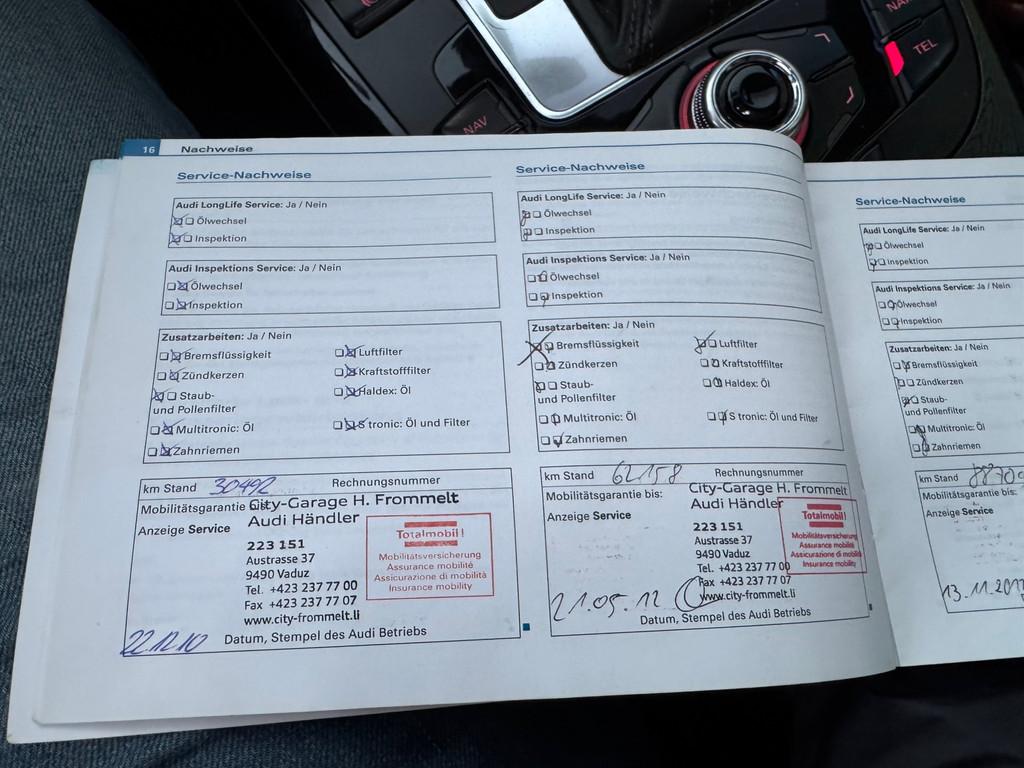 NAV
TEL
16 Nachweise
Service-Nachweise
Audi LongLife Service: Ja / Nein
Ölwechsel
Inspektion
Audi Inspektions Service: Ja / Nein
Ölwechsel
Inspektion
Zusatzarbeiten: Ja / Nein
Bremsflüssigkeit
Luftfilter
Zündkerzen
Kraftstofffilter
Staub-
und Pollenfilter
Haldex: Öl
Multitronic: Öl
S tronic: Öl und Filter
Zahnriemen
km Stand 30492 Rechnungsnummer
Mobilitätsgarantie bis:
City-Garage H. Frommelt
Audi Händler
Anzeige Service
223 151
Austrasse 37
9490 Vaduz
Tel. +423 237 77 00
Fax +423 237 77 07
www.city-frommelt.li
Totalmobil!
Mobilitätsversicherung
Assurance mobilité
Assicurazione di mobilità
Insurance mobility
22.12.10
Datum, Stempel des Audi Betriebs
Service-Nachweise
Audi LongLife Service: Ja / Nein
Ölwechsel
Inspektion
Audi Inspektions Service: Ja / Nein
Ölwechsel
Inspektion
Zusatzarbeiten: Ja / Nein
Bremsflüssigkeit
Luftfilter
Zündkerzen
Kraftstofffilter
Staub-
und Pollenfilter
Haldex: Öl
Multitronic: Öl
S tronic: Öl und Filter
Zahnriemen
km Stand 62158 Rechnungsnummer
Mobilitätsgarantie bis:
City-Garage H. Frommelt
Audi Händler
Anzeige Service
223 151
Austrasse 37
9490 Vaduz
Tel. +423 237 77 00
Fax +423 237 77 07
www.city-frommelt.li
Totalmobil!
Mobilitätsversicherung
Assurance mobilité
Assicurazione di mobilità
Insurance mobility
21.05.12
Datum, Stempel des Audi Betriebs
Service-Nachweise
Audi LongLife Service: Ja / Nein
Ölwechsel
Inspektion
Audi Inspektions Service: Ja / Nein
Ölwechsel
Inspektion
Zusatzarbeiten: Ja / Nein
Bremsflüssigkeit
Zündkerzen
Staub-
und Pollenfilter
Multitronic: Öl
Zahnriemen
km Stand
Mobilitätsgarantie bis:
Anzeige Service